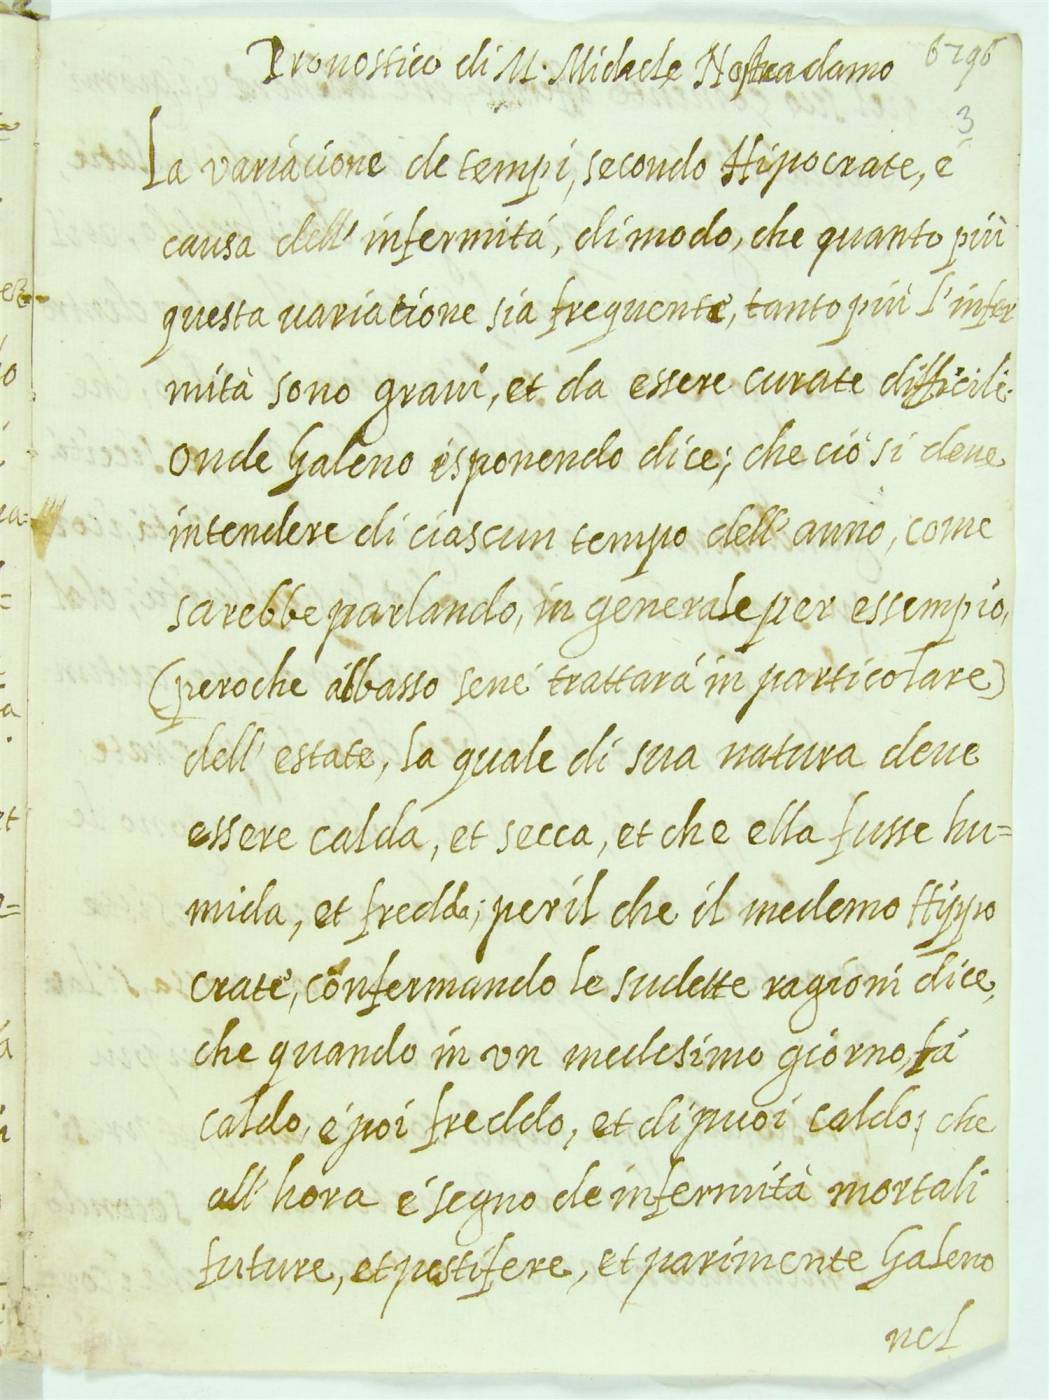 Pronostico di M. Michele Nostradamo
3
La variacione de tempi, secondo Hipocrate, é
causa dell' infermitá, di modo, che quanto piú
questa uariatione sia frequente, tanto piú l'infer
mità sono graui, et da essere curate difficili.
Onde Galeno esponendo dice; che ció si deue
intendere di ciascun tempo dell' anno, come
sarebbe parlando, in generale per essempio,
(peroche abbasso sené trattará in particolare)
dell' estate, la quale di sua natura deue
essere calda, et secca, et che ella fusse hu=
mida, et fredda; per il che il medemo Hippo
crate, confermando le sudette ragioni dice,
che quando in vn medesimo giorno, fá
caldo, é poi freddo, et di puoi caldo; che
all' hora é segno de infermità mortali
future, et pestifere, et parimente Galeno
nel